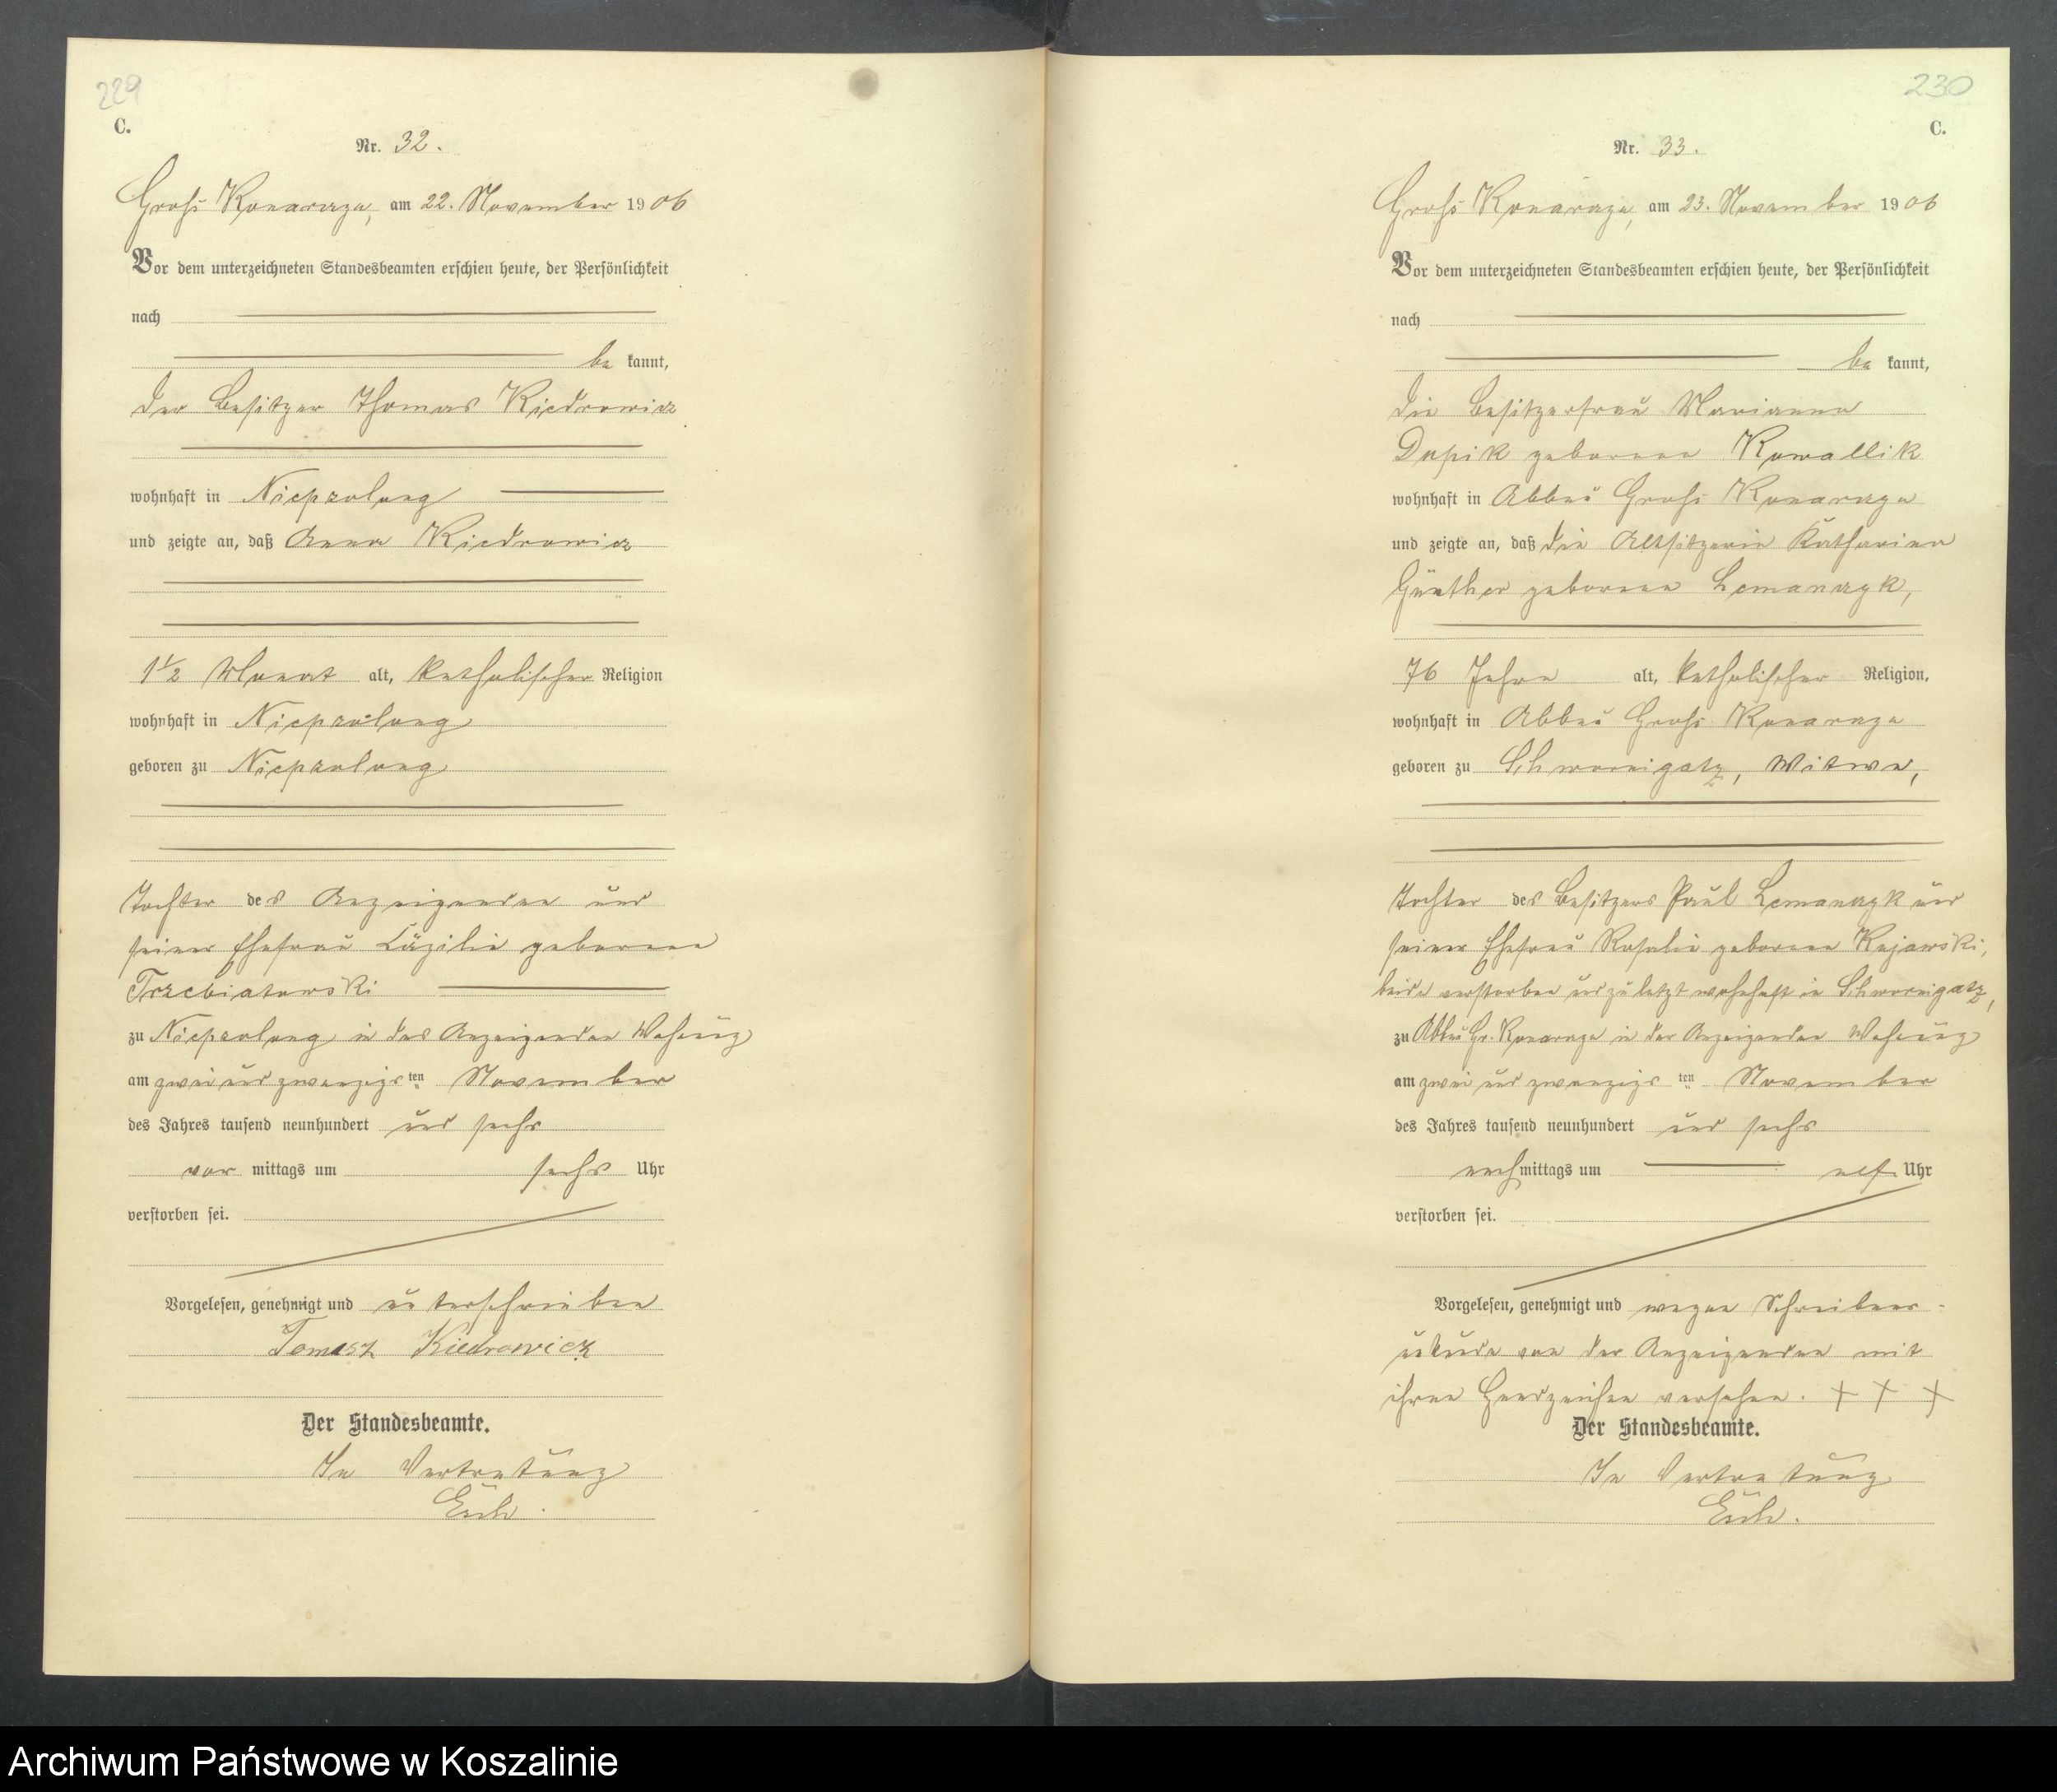 229
C.
Nr. 32.
Groß Konarczyn, am 22. November 1906
Vor dem unterzeichneten Standesbeamten erschien heute, der Persönlichkeit
nach
be kannt,
der Besitzer Thomas Kiedrowicz
wohnhaft in Niepszolong
und zeigte an, daß Anna Kiedrowicz
1½ Monat alt, katholischer Religion
wohnhaft in Niepszolong
geboren zu Niepszolong
Tochter des Anzeigenden und
seiner Ehefrau Cäzilie geborenen
Trzebiatowski
zu Niepszolong in des Anzeigenden Wohnung
am zwei und zwanzigsten November
des Jahres tausend neunhundert und sechs
vor mittags um sechs Uhr
verstorben sei.
Vorgelesen, genehmigt und unterschrieben
Tomasz Kiedrowicz
Der Standesbeamte.
In Vertretung
230
C.
Nr. 33.
Groß Konarczyn, am 23. November 1906
Vor dem unterzeichneten Standesbeamten erschien heute, der Persönlichkeit
nach
be kannt,
die Besitzerfrau Marianna
geborene Kowallik
wohnhaft in Abbau Groß Konarczyn
und zeigte an, daß die Altsitzerin Katharina
Günther geborene Lemanczyk,
76 Jahre alt, katholischer Religion,
wohnhaft in Abbau Groß Konarczyn
geboren zu Schwornigatz, Witwe,
Tochter des Besitzers Paul Lemanczyk und
seiner Ehefrau Rosalie geborenen Kujawski,
beide verstorben und zuletzt wohnhaft in Schwornigatz,
zu Abbau Gr. Konarczyn in der Anzeigenden Wohnung
am zwei und zwanzigsten November
des Jahres tausend neunhundert und sechs
nachmittags um elf Uhr
verstorben sei.
Vorgelesen, genehmigt und wegen Schreibens-
unkunde von der Anzeigenden mit
ihren Handzeichen versehen. + + +
Der Standesbeamte.
In Vertretung
Archiwum Państwowe w Koszalinie